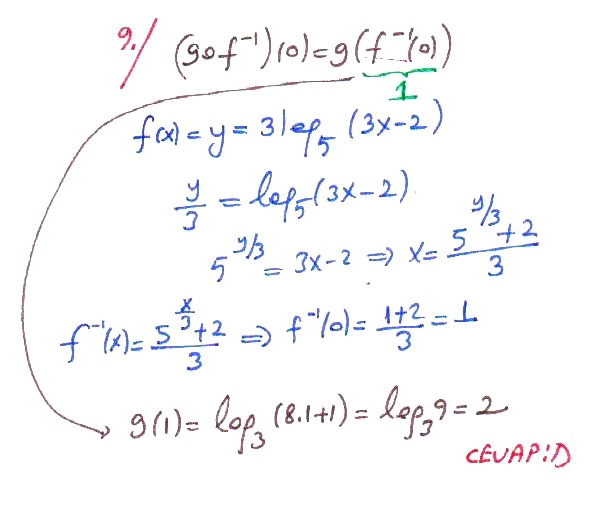 9./ (gof⁻¹)(0)=g(f⁻¹(0))
1
f(x)=y=3log₅(3x-2)
y/3 = log₅(3x-2)
5^(y/3) = 3x-2 ⇒ x= (5^(y/3)+2)/3
f⁻¹(x)= (5^(x/3)+2)/3 ⇒ f⁻¹(0)= (1+2)/3 = 1
g(1)= log₃(8.1+1)= log₃9=2
CEVAP:D